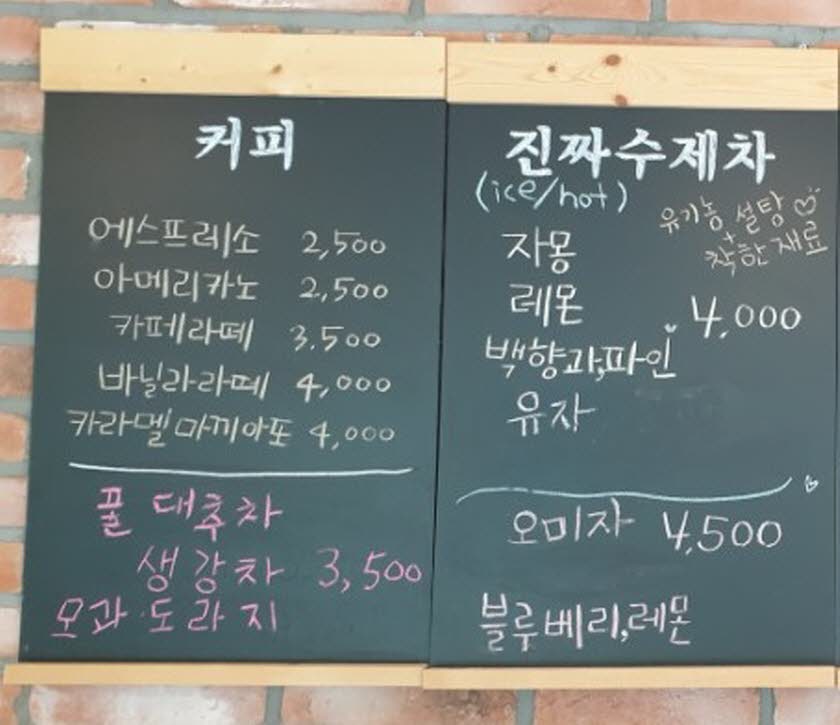 커피
에스프레소 2,500
아메리카노 2,500
카페라떼 3,500
바닐라라떼 4,000
카라멜마끼아또 4,000
풀 대추차
생강차 3,500
모과·도라지
진짜수제차
(ice/hot)
유기농 설탕
+
착한재료
자몽
레몬
4,000
백향과,파인
유자
오미자 4,500
블루베리,레몬